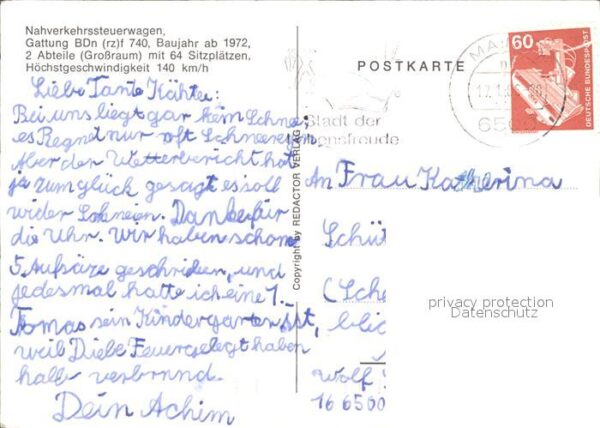 Nahverkehrssteuerwagen,
Gattung BDn (rz)f 740, Baujahr ab 1972,
2 Abteile (Großraum) mit 64 Sitzplätzen.
Höchstgeschwindigkeit 140 km/h
Liebe Tante Käthe:
Bei uns liegt gar kein Schnee
es Regnet nur oft Schneeregen
Aber der Wetterbericht hat
ja zum glück gesagt es soll
wider Schneien. Danke für
die Uhr. Wir haben schon
5 Aufsäze geschriben, und
jedesmal hatte ich eine 1.-
Tomas sein Kindergarten ist,
weil Diebe Feuer gelegt haben
halb verbrnnd.
Dein Achim
Copyright by REDACTOR VERLAG
POSTKARTE
60
DEUTSCHE BUNDESPOST
MA
17.1.
650
Stadt der
bensfreude
An Frau Katherina
Schü
(Sche
blic
Wolf
16 6500
privacy protection
Datenschutz